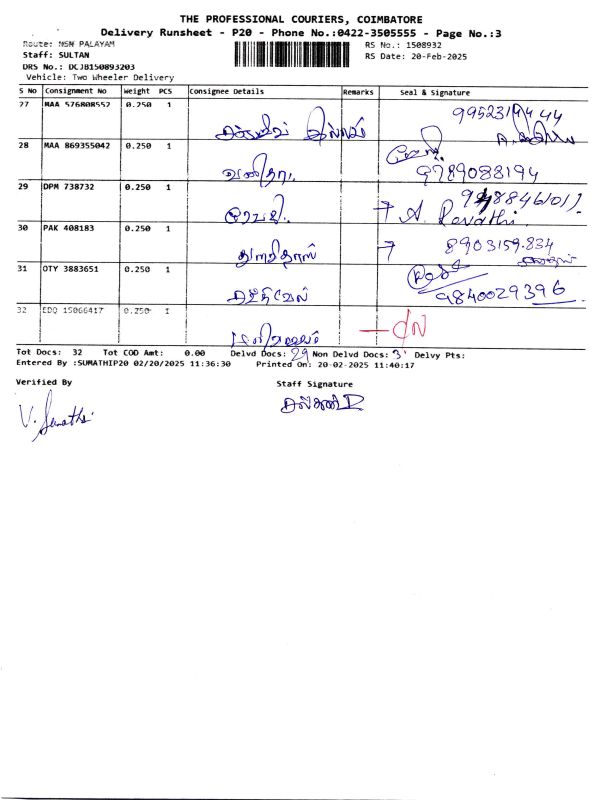 THE PROFESSIONAL COURIERS, COIMBATORE
Delivery Runsheet - P20 - Phone No.:0422-3505555 - Page No.:3
Route: NSN PALAYAM RS No.: 1508932
Staff: SULTAN RS Date: 20-Feb-2025
DRS No.: DCJB150893203
Vehicle: Two Wheeler Delivery
S No Consignment No Weight PCS Consignee Details Remarks Seal & Signature
27 MAA 576808552 0.250 1
28 MAA 869355042 0.250 1 வனிதா. 9789088194
29 DPM 738732 0.250 1 ரேவதி. A. Revathi
30 PAK 408183 0.250 1 துளசிதாஸ் 8903159834
31 OTY 3883651 0.250 1 சக்திவேல் 9840029396
32 EDQ 15066417 0.250 1
Tot Docs: 32 Tot COD Amt: 0.00 Delvd Docs: 29 Non Delvd Docs: 3 Delvy Pts:
Entered By :SUMATHIP20 02/20/2025 11:36:30 Printed On: 20-02-2025 11:40:17
Verified By Staff Signature
V. Sumathi